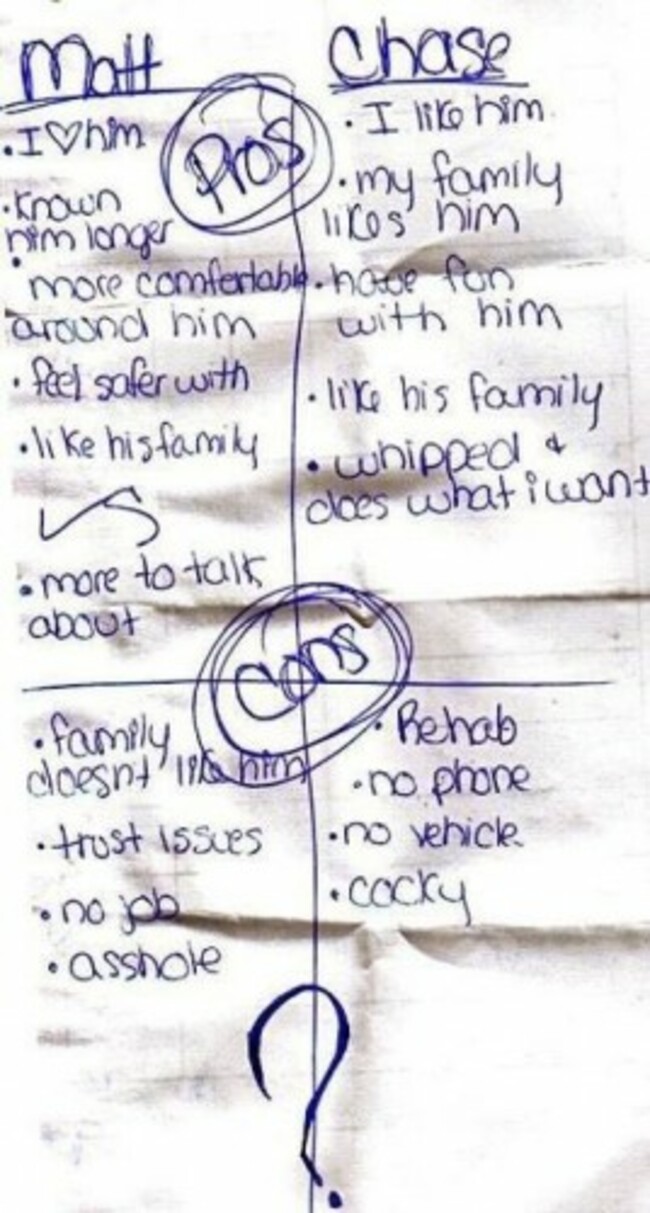 Matt
Pros
• I ♡ him
• Known
him longer
• more comfortable
around him
• feel safer with
• like his family
• more to talk
about
Chase
• I like him
• my family
likes him
• have fun
with him
• like his family
• whipped &
does what i want
Cons
• family
doesnt like him
• trust issues
• no job
• asshole
• Rehab
• no phone
• no vehicle
• cocky
?